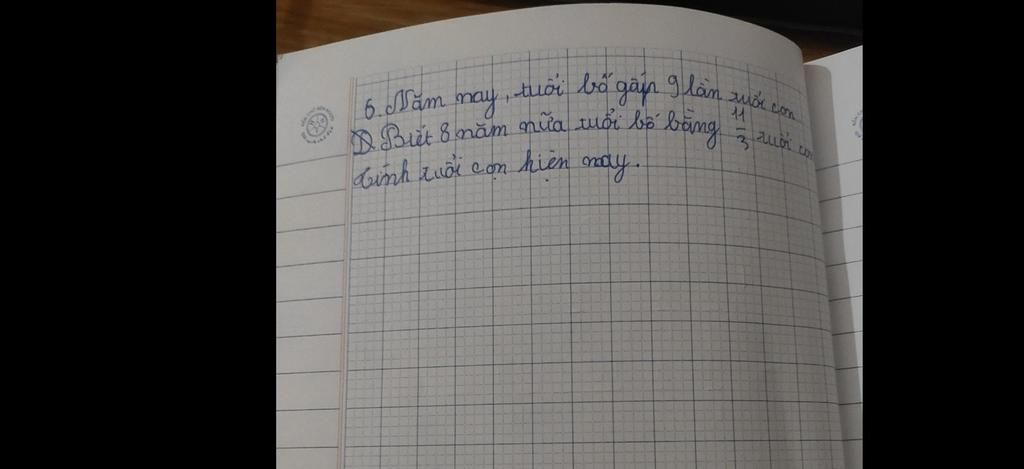 6. Năm nay, tuổi bố gấp 9 lần tuổi con
D. Biết 8 năm nữa tuổi bố bằng 11/3 tuổi con
Tính tuổi con hiện nay.